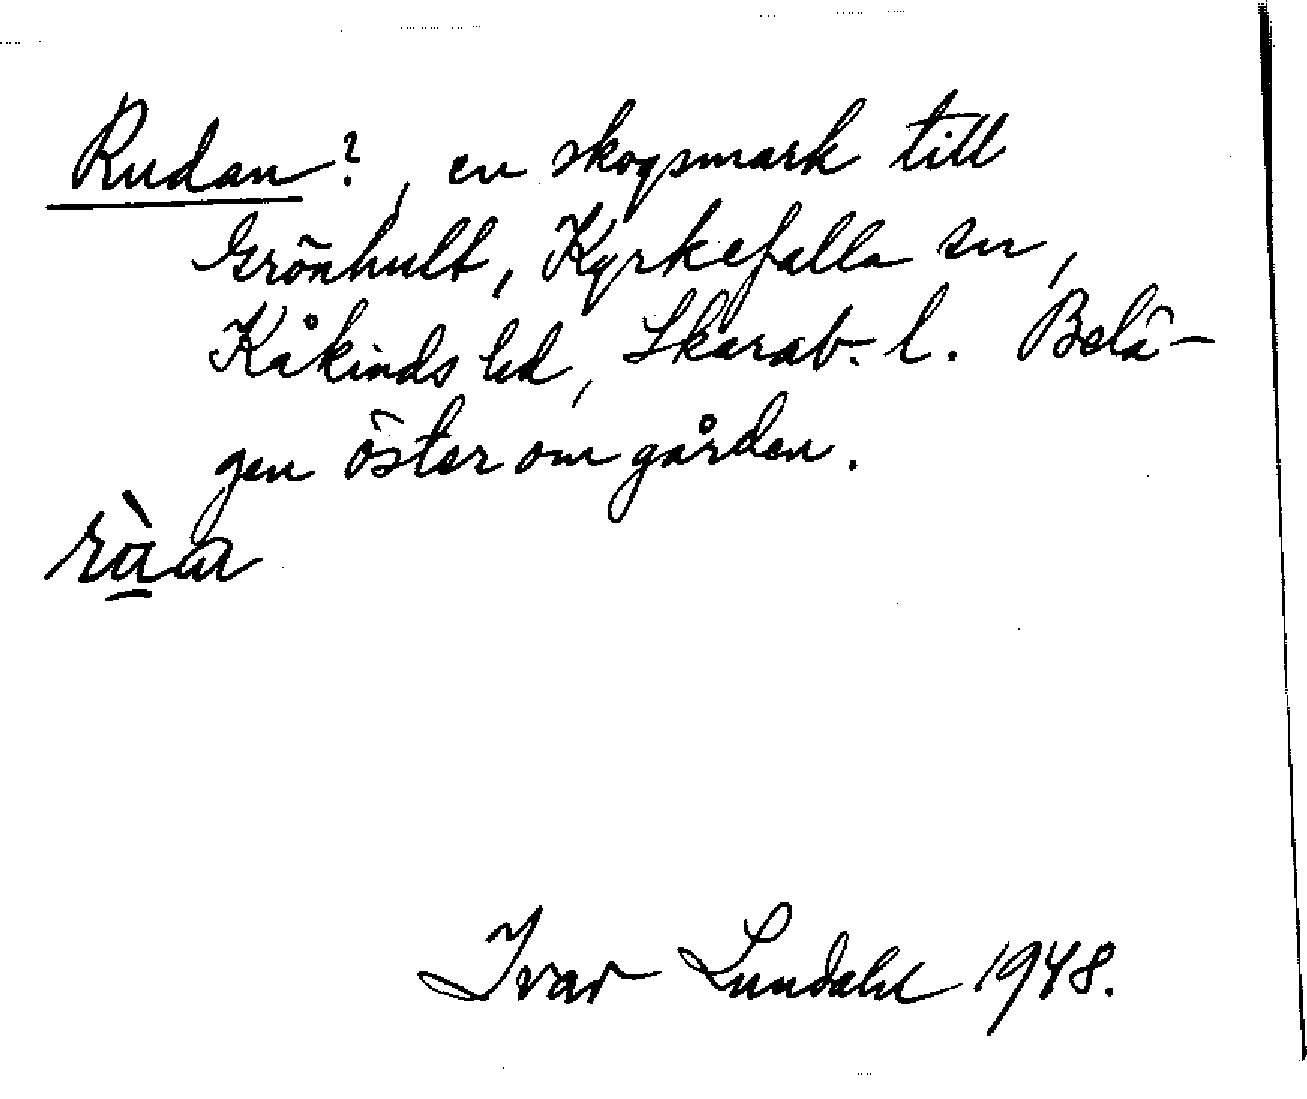 Rudan?, en skogsmark till
Grönhult, Kyrkefalla sn,
Kåkinds hd, Skarab. l. Belä-
gen öster om gården.
Ivar Lundahl 1948.